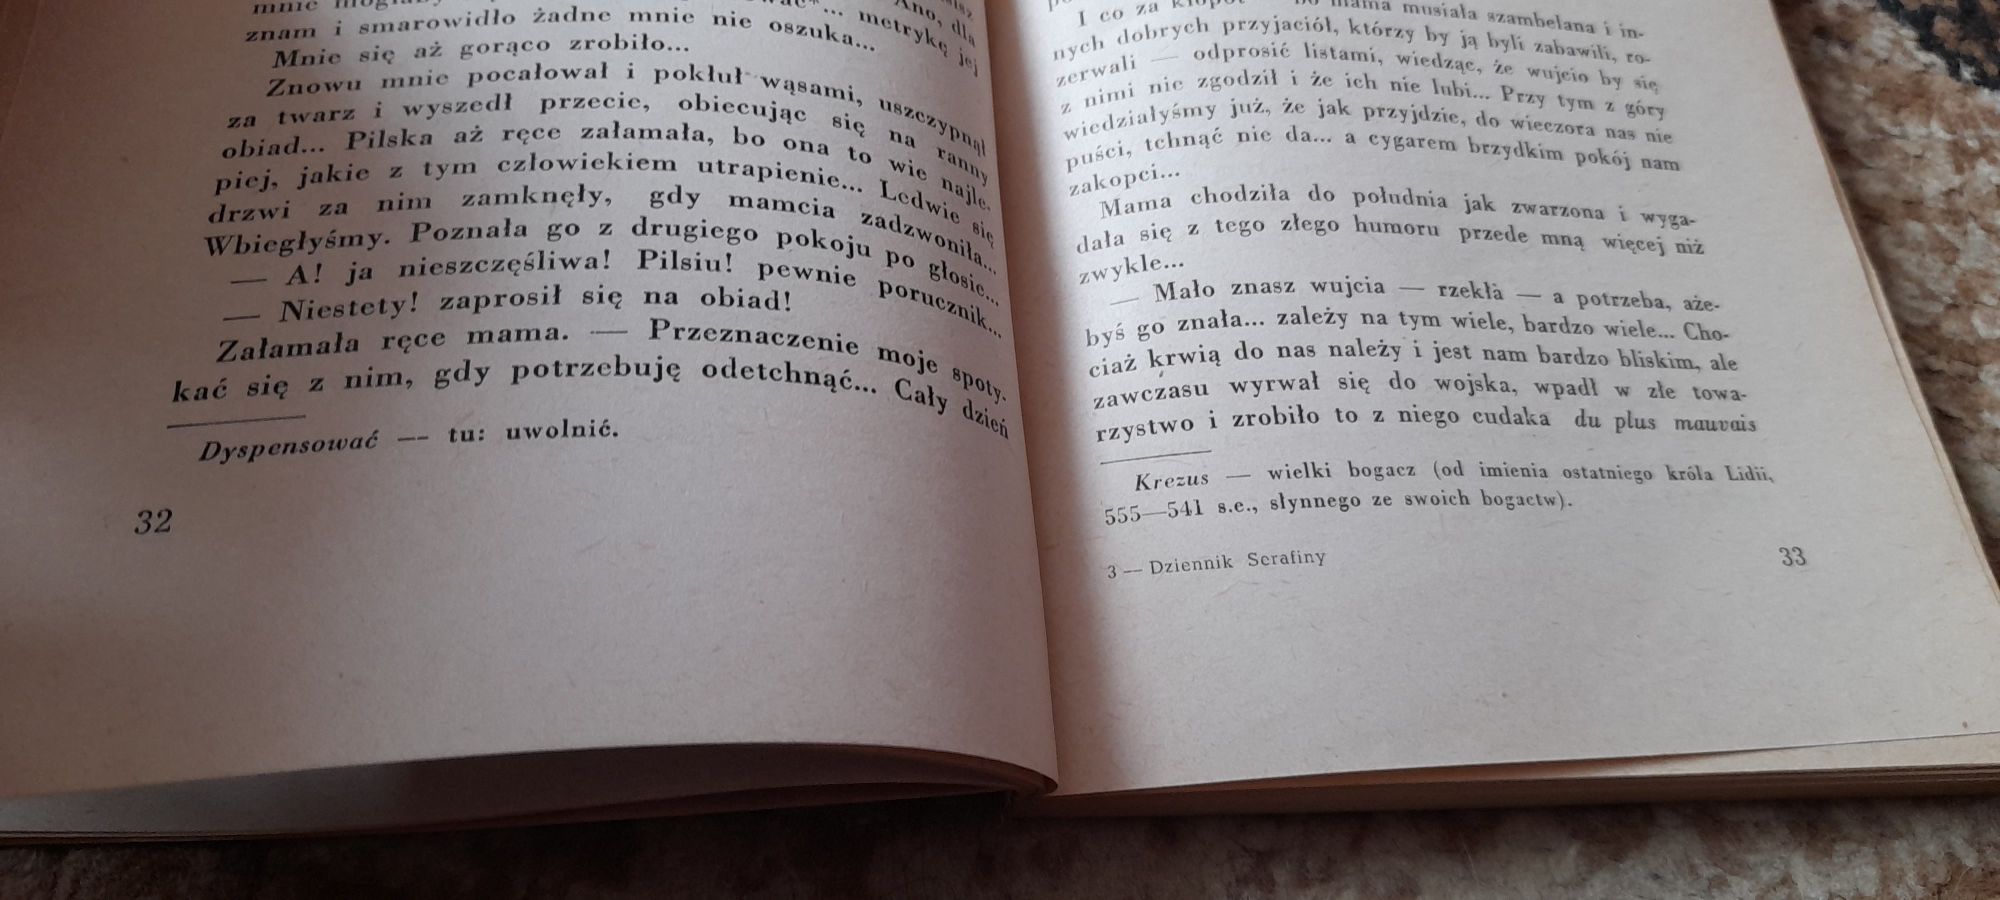 znam i smarowidło żadne mnie nie oszuka... metrykę jej
Mnie się aż gorąco zrobiło...
Znowu mnie pocałował i pokłuł wąsami, uszczypnął
za twarz i wyszedł przecie, obiecując się na ranny
obiad... Pilska aż ręce załamała, bo ona to wie najle-
piej, jakie z tym człowiekiem utrapienie... Ledwie się
drzwi za nim zamknęły, gdy mamcia zadzwoniła...
Wbiegłyśmy. Poznała go z drugiego pokoju po głosie...
— A! ja nieszczęśliwa! Pilsiu! pewnie porucznik...
— Niestety! zaprosił się na obiad!
Załamała ręce mama. — Przeznaczenie moje spoty-
kać się z nim, gdy potrzebuję odetchnąć... Cały dzień
Dyspensować — tu: uwolnić.
32
I co za bo mama musiała szambelana i in-
nych dobrych przyjaciół, którzy by ją byli zabawili, ro-
zerwali — odprosić listami, wiedząc, że wujcio by się
z nimi nie zgodził i że ich nie lubi... Przy tym z góry
wiedziałyśmy już, że jak przyjdzie, do wieczora nas nie
puści, tchnąć nie da... a cygarem brzydkim pokój nam
zakopci...
Mama chodziła do południa jak zwarzona i wyga-
dała się z tego złego humoru przede mną więcej niż
zwykle...
— Mało znasz wujcia — rzekła — a potrzeba, aże-
byś go znała... zależy na tym wiele, bardzo wiele... Cho-
ciaż krwią do nas należy i jest nam bardzo bliskim, ale
zawczasu wyrwał się do wojska, wpadł w złe towa-
rzystwo i zrobiło to z niego cudaka du plus mauvais
Krezus — wielki bogacz (od imienia ostatniego króla Lidii,
555—541 s.e., słynnego ze swoich bogactw).
3 — Dziennik Serafiny
33